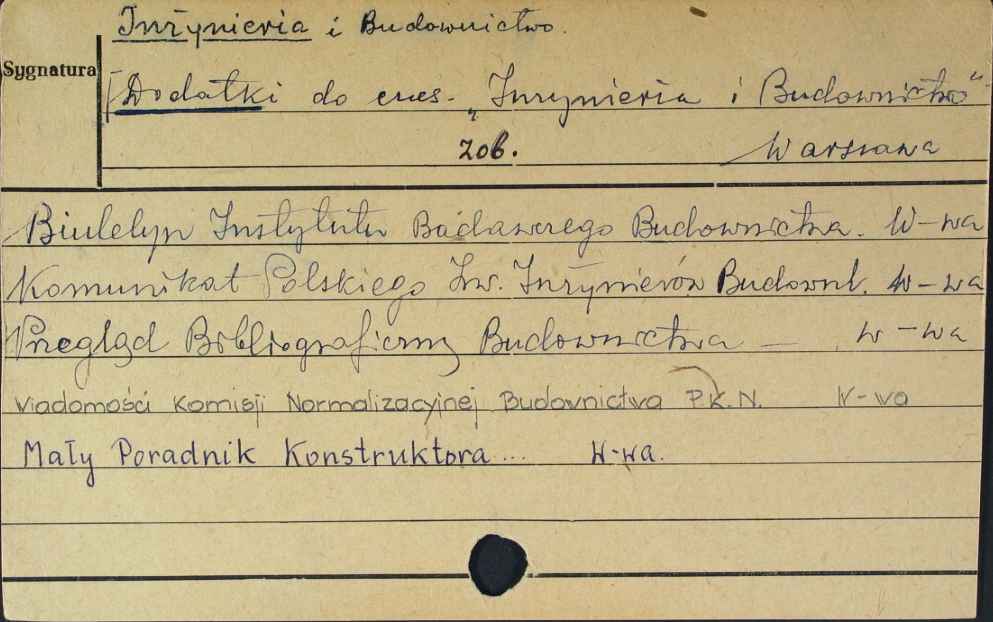 Inżynieria i Budownictwo.
Sygnatura
[Dodatki do czas. „Inżynieria i Budownictwo"
zob. Warszawa
Biuletyn Instytutu Badawczego Budownictwa. W-wa
Komunikat Polskiego Zw. Inżynierów Budownl. W-wa
Przegląd Bibliograficzny Budownictwa — W-wa
Wiadomości Komisji Normalizacyjnej Budownictwa P.K.N. W-wa
Mały Poradnik Konstruktora ... W-wa.